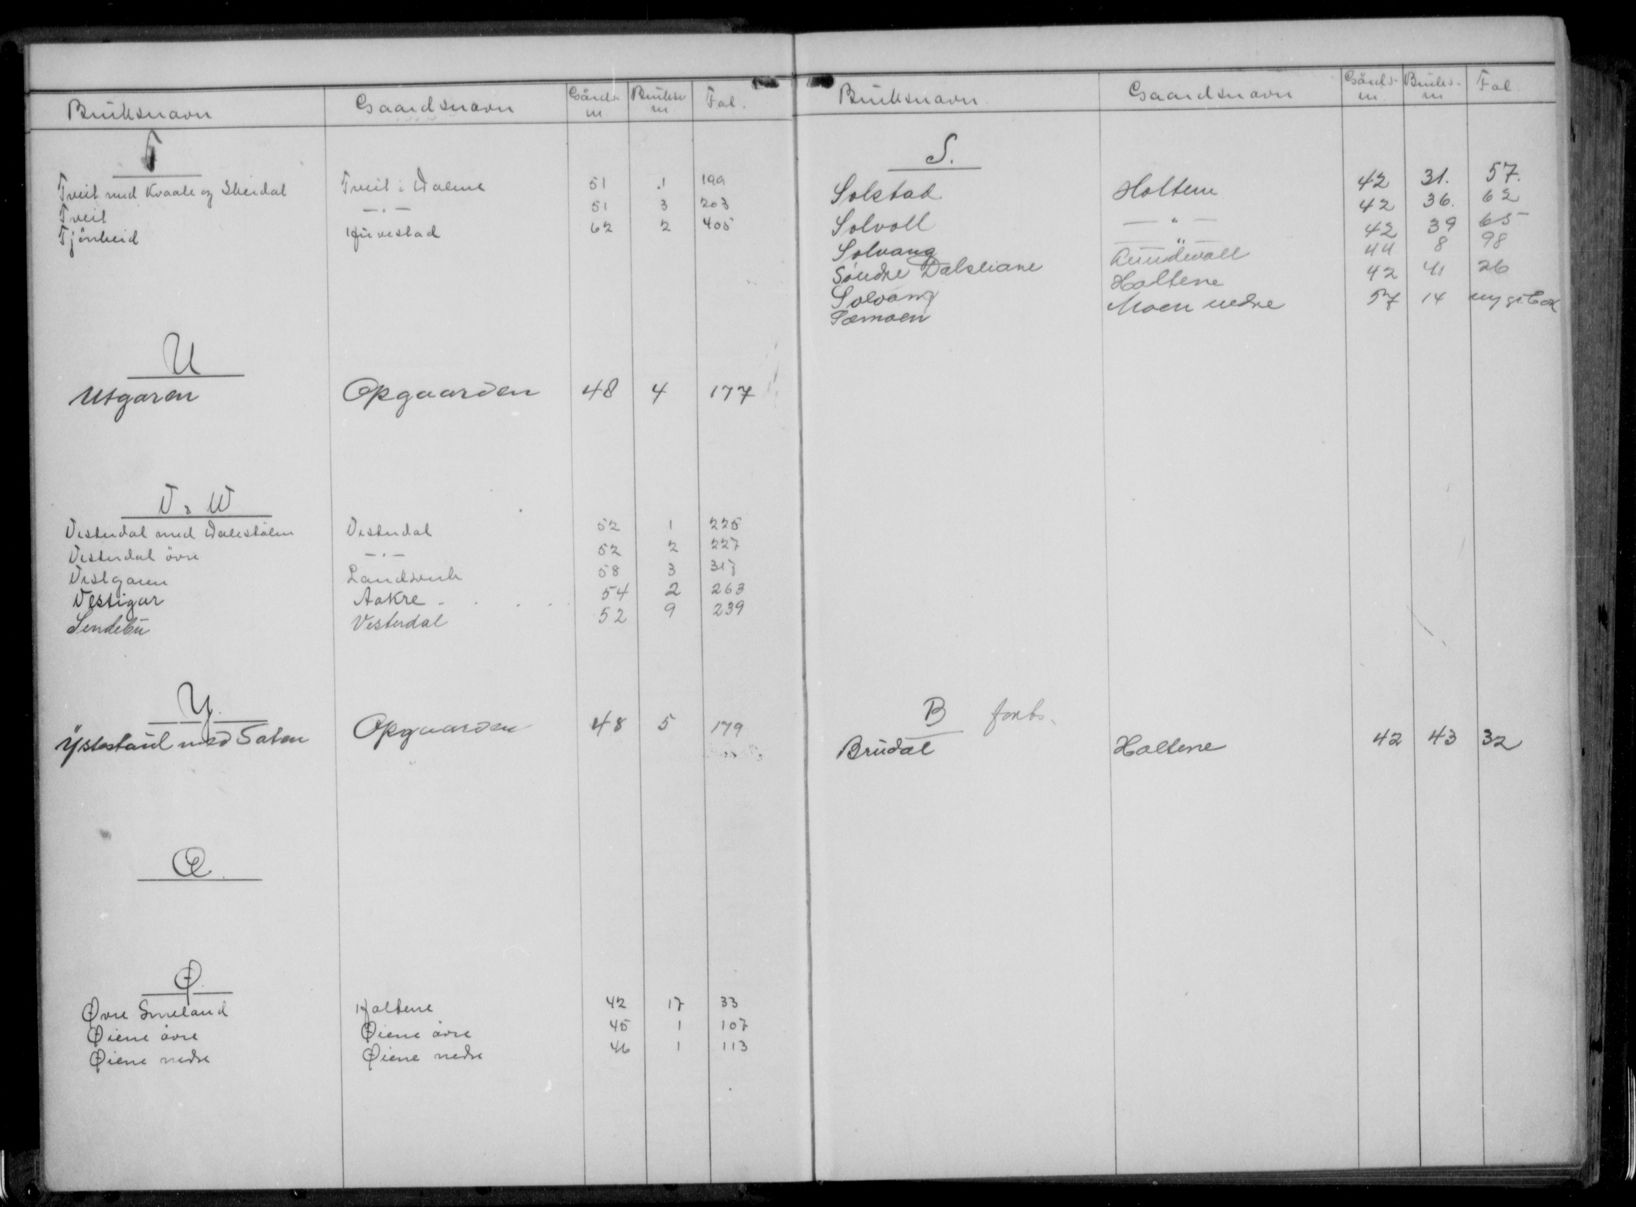 Bruksnavn Gaardsnavn Gårds nr Bruks nr Fol.
T
Tveit med Kvaale og Skeidal Tveit i Dalene 51 1 199
Tveit —"— 51 3 203
Tjönheid Huvestad 62 2 405
U
Utgaren Opgaarden 48 4 177
V & W
Vesterdal med Dalestølen Vesterdal 52 1 225
Vesterdal övre —"— 52 2 227
Vestgaren Landsverk 58 3 317
Vestigar Aakre 54 2 263
Vesterdal 52 9 239
Y.
Ystestaul med Saten Opgaarden 48 5 179
Æ.
Ø.
Øvre Smeland Holtene 42 17 33
Øiene övre Øiene övre 45 1 107
Øiene nedre Øiene nedre 46 1 113
Bruksnavn Gaardsnavn Gårds- nr Bruks- nr Fol
S.
Solstad Holtene 42 31. 57.
Solvoll —"— 42 36. 62
Solvang —"— 42 39 65
Søndre Dalsliane 44 8 98
Solvang Holtene 42 41 26
Sæmoen Moen nedre 57 14
B forts.
Brudal Holtene 42 43 32